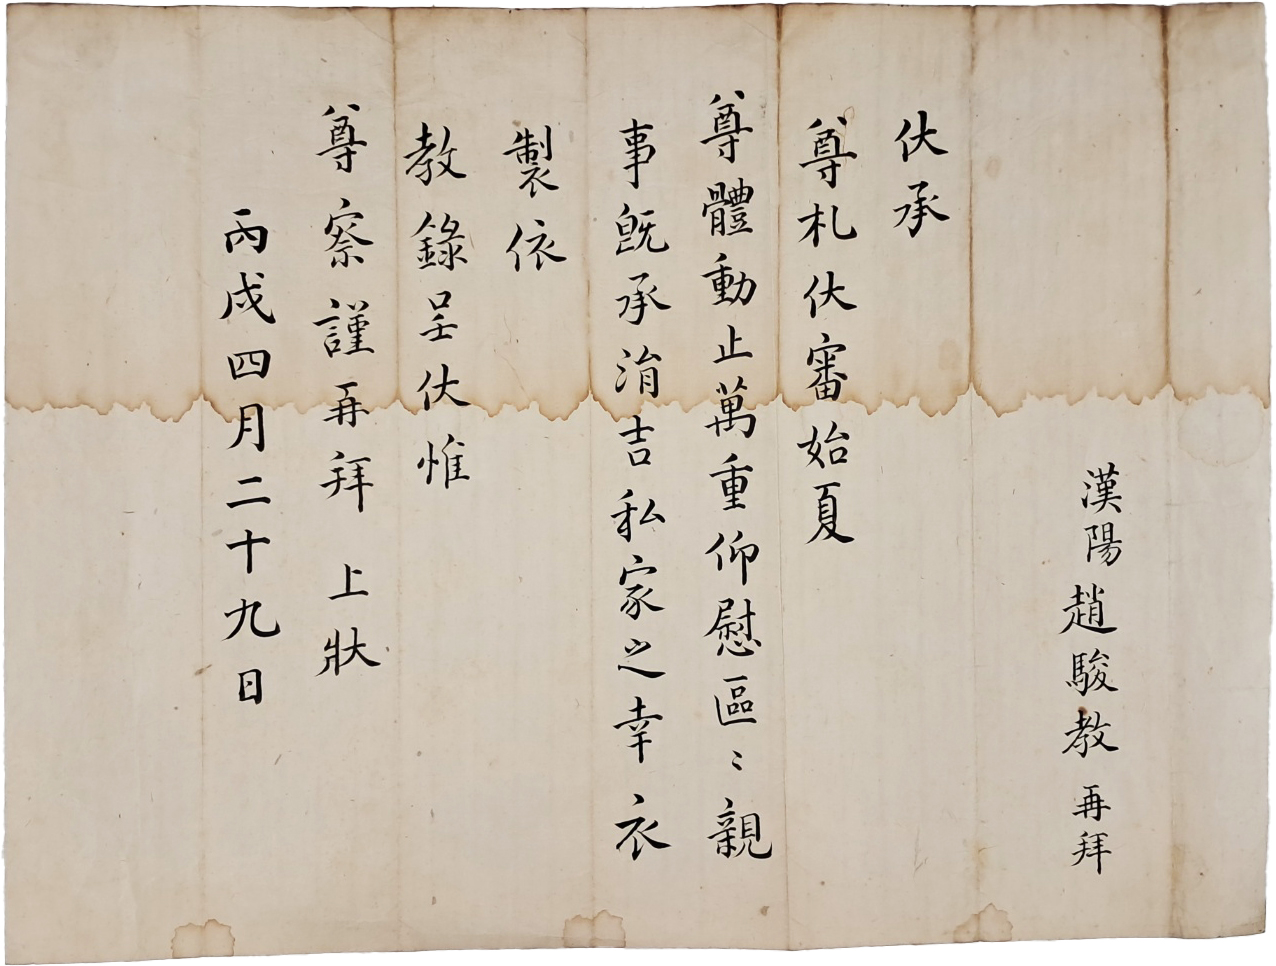 漢陽趙駿教再拜
伏承
尊札伏審始夏
尊體動止萬重仰慰區〻親
事旣承涓吉私家之幸衣
製依
教錄呈伏惟
尊察謹再拜 上狀
丙戌四月二十九日